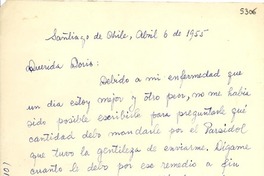 5306
Santiago de Chile, Abril 6 de 1955
Querida Doris:
Debido a mi enfermedad que
un dia estoy mejor y otro peor, no me había
sido posible escribirle para preguntarle qué
cantidad debo mandarle por el Parsidol
que tuvo la gentileza de enviarme. Dígame
cuanto le debo por ese remedio a fin